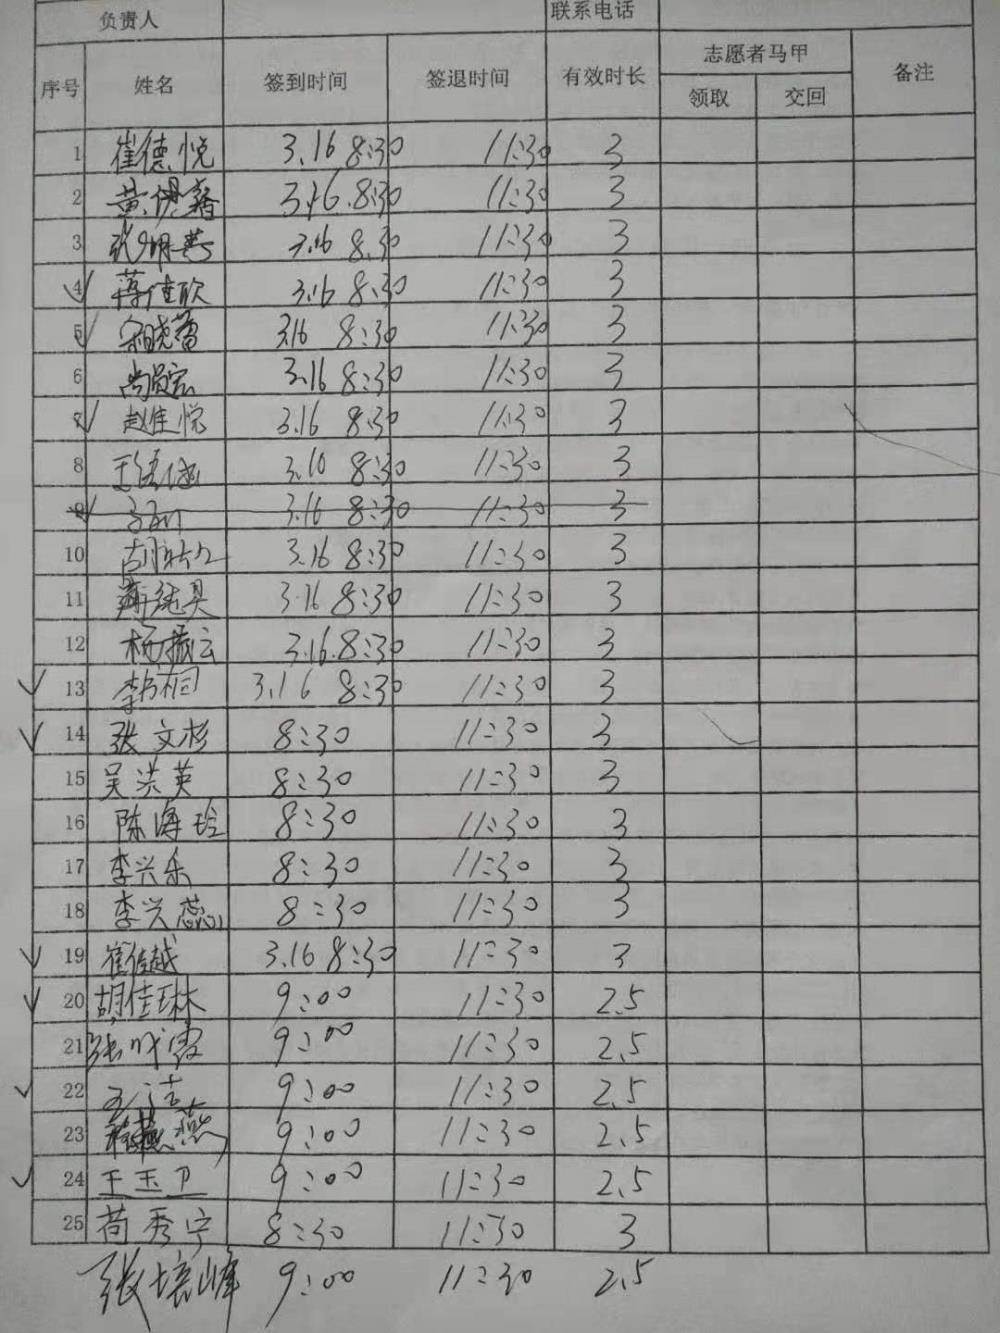 负责人 联系电话
序号 姓名 签到时间 签退时间 有效时长 志愿者马甲 备注
领取 交回
1 崔德悦 3.16 8:30 11:30 3
2 黄 3.16 8:30 11:30 3
3 张 3.16 8:30 11:30 3
4 蒋佳欣 3.16 8:30 11:30 3
5 宋晓蕾 3.16 8:30 11:30 3
6 尚 3.16 8:30 11:30 3
7 赵佳悦 3.16 8:30 11:30 3
8 王 3.16 8:30 11:30 3
9 3.16 8:30 11:30 3
10 胡 3.16 8:30 11:30 3
11 3.16 8:30 11:30 3
12 杨振云 3.16 8:30 11:30 3
13 李 桐 3.16 8:30 11:30 3
14 张文杉 8:30 11:30 3
15 吴洪英 8:30 11:30 3
16 陈海玲 8:30 11:30 3
17 李兴乐 8:30 11:30 3
18 李兴蕊 8:30 11:30 3
19 崔佳越 3.16 8:30 11:30 3
20 胡佳琳 9:00 11:30 2.5
21 张 霞 9:00 11:30 2.5
22 王洁 9:00 11:30 2.5
23 燕 9:00 11:30 2.5
24 王玉卫 9:00 11:30 2.5
25 苟秀宁 8:30 11:30 3
张培峰 9:00 11:30 2.5